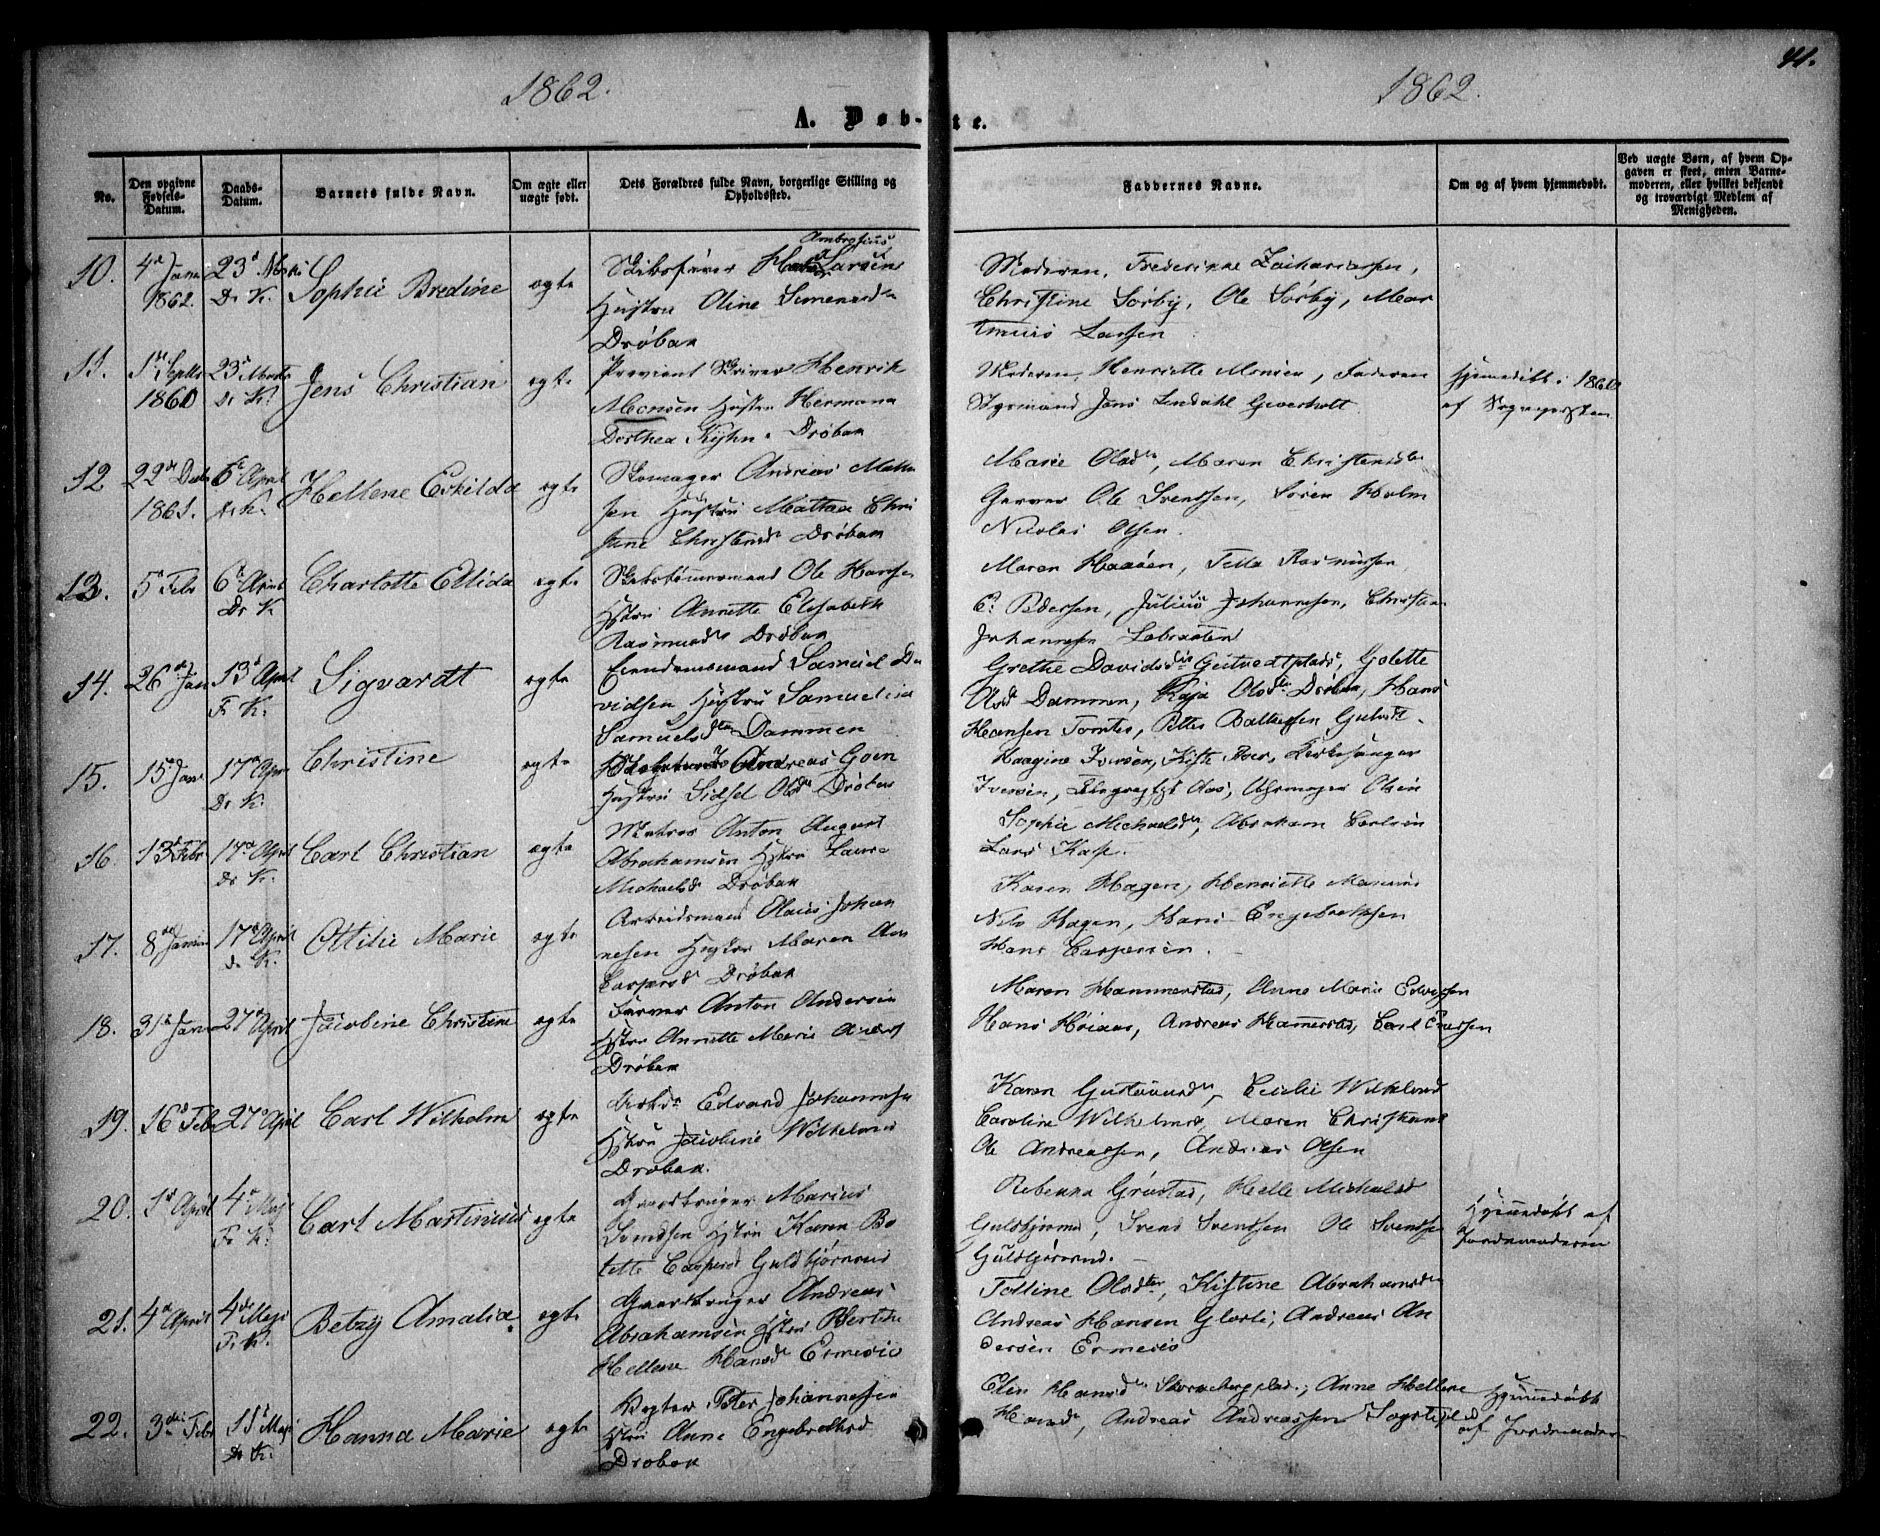 41.
1862. 1862.
A. Døb-te.
No.
Den opgivne Fødsels-Datum.
Daabs-Datum.
Barnets fulde Navn.
Om ægte eller uægte født.
Dets Forældres fulde Navn, borgerlige Stilling og Opholdssted.
Faddernes Navne.
Om og af hvem hjemmedøbt.
Ved uægte Børn, af hvem Op-
gaven er skeet, enten Barne-
moderen, eller hvilket bekjendt
og troværdigt Medlem af
Menigheden.
10. 4d Janr 1862. 23d Marts Dr K. Sophie Bredine ægte
Skibsfører Ambrosius Larsen
Hustru Oline Simensdr
Drøbak
Moderen, Frederikke Zachariassen,
Christine Sørby, Ole Sørby, Mar
tinius Larsen
11. 1ste Septbr 1860 23d Marts Dr K. Jens Christian ægte
Proviant Skriver Henrik
Monsen Hustru Hermana
Dorthea Kyhn. Drøbak
Moderen, Henriette Monsen, Faderen
Styrmand Jens Lindahl
Hjemmedøbt i 1860
af Sognepresten
12 22de Decbr 1861. 6te April Dr K. Hellene Eskilda ægte
Skomager Andreas
sen Hustru Mathea Chri
stine Christensd Drøbak
Marie Olsdtr, Maren Christensdr
Garver Ole Svendsen, Søren Holm
Nicolai Olsen.
13. 5te Febr 6te April Dr K. Charlotte Elida ægte
Skibstømmermand Ole Hansen
Hstru Annette Elisabeth
Rasmusdr Drøbak
Maren Rasmussen
C. Pedersen, Julius Johannesen, Christian
Johannesen
14. 26d Jan 13d April F. K. Sigvardt ægte
Eiendomsmand Samuel Da
vidsen Hustru Samueline
Samuelsdtr Dammen
Grethe Davidsdtr Gutvedtplads, Golette
Olsd Dammen, Kaja Olsdtr Drøbak, Hans
Hansen Tomter, Petter
15. 15d Janr 17d Apr Dr K. Christine ægte
Andreas Goen
Hustru Sidsel Olsdr Drøbak
Haagine Iversen, Kirkesanger
Iversen, Aas, Olsen
16. 13d Febr 17d April Dr K. Carl Christian ægte
Matros Anton August
Abrahamsen Hstru Laura
Michaelsdr Drøbak
Sophie Michaelsdr, Abraham Carlsen
Lars Kase.
17. 8de Januar 17d April Dr K. Ottilie Marie ægte
Arbeidsmand Olaus Johan
nesen Hustru Maren
Caspersd Drøbak
Karen Hagen, Henriette
Nils Hagen, Hans Engebretsen
Hans Caspersen.
18. 31te Janr 27d April Jacobine Christine ægte
Farver Anton Andersen
Hstru Annette Marie Anders
Drøbak
Maren Hammerstad, Anne Marie
Hans Høiaas, Andreas Hamerstad, Carl
19. 16d Febr 27d April Carl Wilhelm ægte
Arbdr Edvard Johannesen
Hstru Jacobine Wilhelmsd
Drøbak.
Karen Gustavusdr, Cecilie Wilhelmsd
Caroline Wilhelmsd, Maren Christians
Ole Andreassen, Andreas Olsen
20. 1d April 4d Maj F. K. Carl Martinius ægte
Gaardbruger Marius
Svendsen Hstru Karen Bo
lette Caspersd Guldbjørnrud
Rebekka Grøstad, Helle Michelsd
Guldbjørnrud, Svend Svendsen Ole Svendsen
Guldbjørnrud.
Hjemmedøbt af
Jordemoderen
21. 4d April 4de Maj F. K. Betzy Amalia. ægte
Gaardbruger Andreas
Abrahamsen Hstru Berthe
Hellene Hansd Ermesiø
Tolline Olsdtr, Kistine Abrahamsdr
Andreas Hansen Glorli, Andreas An
dersen Ermesiø
22. 3die Febr 11d Maj Dr K. Hanna Marie ægte
Vægter Peter Johannesen
Hstru Anne Engebretsd
Drøbak
Elen Hansdr, Anne Hellene
Hansdr, Andreas Andreassen
Hjemmedøbt
af Jordemoder